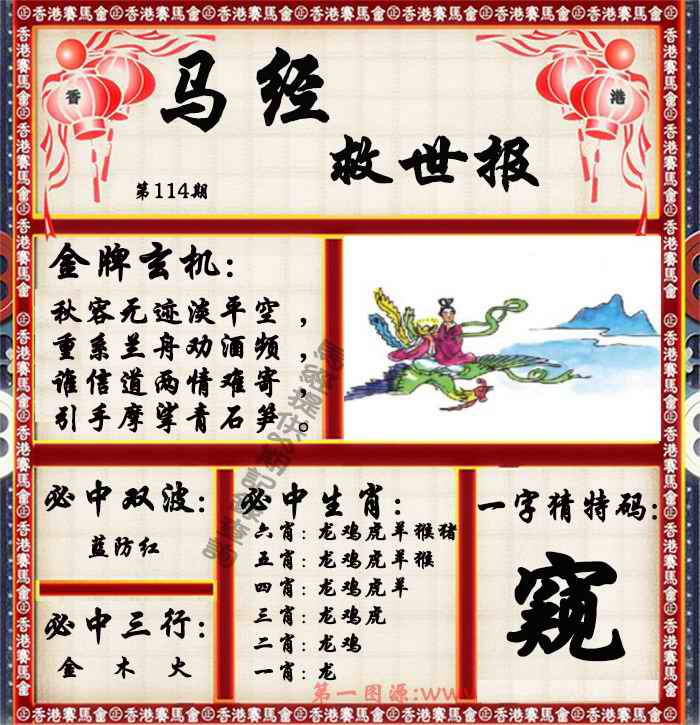 香港賽馬會
香 港
马经
救世报
第114期
金牌玄机:
秋容无迹淡平空，
重系兰舟劝酒频，
谁信道两情难寄，
引手摩挲青石笋。
必中双波:
蓝防红
必中三行:
金 木 火
必中生肖:
六肖:龙鸡虎羊猴猪
五肖:龙鸡虎羊猴
四肖:龙鸡虎羊
三肖:龙鸡虎
二肖:龙鸡
一肖:龙
一字猜特码:
窥
第一图源:www